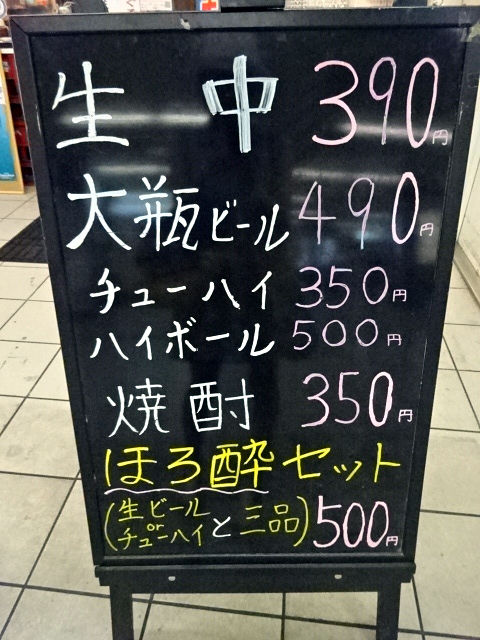 生中 390円
大瓶ビール 490円
チューハイ 350円
ハイボール 500円
焼酎 350円
ほろ酔セット
(生ビール or チューハイ と 三品) 500円